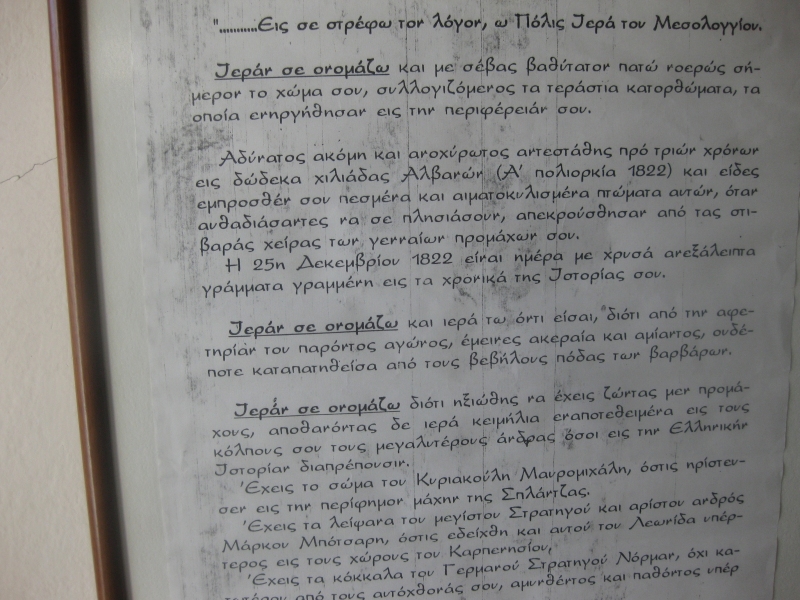 "...........Εις σε στρέφω τον λόγον, ω Πόλις Ιερά του Μεσολογγίου.
Ιεράν σε ονομάζω και με σέβας βαθύτατον πατώ νοερώς σή-
μερον το χώμα σου, συλλογιζόμενος τα τεράστια κατορθώματα, τα
οποία ενηργήθησαν εις την περιφέρειάν σου.
Αδύνατος ακόμη και ανοχύρωτος αντεστάθης πρό τριών χρόνων
εις δώδεκα χιλιάδας Αλβανών (Α' πολιορκία 1822) και είδες
εμπροσθέν σου πεσμένα και αιματοκυλισμένα πτώματα αυτών, όταν
αυθαδιάσαντες να σε πλησιάσουν, απεκρούσθησαν από τας στι-
βαράς χείρας των γενναίων προμάχων σου.
Η 25η Δεκεμβρίου 1822 είναι ημέρα με χρυσά ανεξάλειπτα
γράμματα γραμμένη εις τα χρονικά της Ιστορίας σου.
Ιεράν σε ονομάζω και ιερά τω όντι είσαι, διότι από την αφε-
τηρίαν του παρόντος αγώνος, έμεινες ακεραία και αμίαντος, ουδέ-
ποτε καταπατηθείσα από τους βεβήλους πόδας των βαρβάρων.
Ιεράν σε ονομάζω διότι ηξιώθης να έχεις ζώντας μεν προμά-
χους, αποθανόντας δε ιερά κειμήλια εναποτεθειμένα εις τους
κόλπους σου τους μεγαλυτέρους άνδρας όσοι εις την Ελληνικήν
Ιστορίαν διαπρέπουσιν.
Έχεις το σώμα του Κυριακούλη Μαυρομιχάλη, όστις ηρίστευ-
σεν εις την περίφημον μάχην της Σπλάντζας.
Έχεις τα λείψανα του μεγίστου Στρατηγού και αρίστου ανδρός
Μάρκου Μπότσαρη, όστις εδείχθη και αυτού του Λεωνίδα υπέρ-
τερος εις τους χώρους του Καρπενησίου,
Έχεις τα κόκκαλα του Γερμανού Στρατηγού Νόρμαν, όχι κα-
από τους αυτόχθονάς σου, αμυνθέντος και παθόντος υπέρ